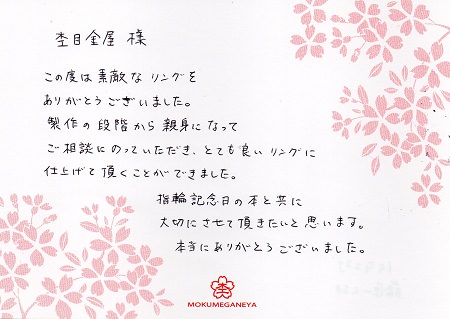 杢目金屋 様
この度は素敵な リングを
ありがとうございました。
製作の段階から親身になって
ご相談にのっていただき、とても良い リングに
仕上げて頂くことができました。
指輪記念日の本と共に
大切にさせて頂きたいと思います。
本当にありがとうございました。
杢
MOKUMEGANEYA